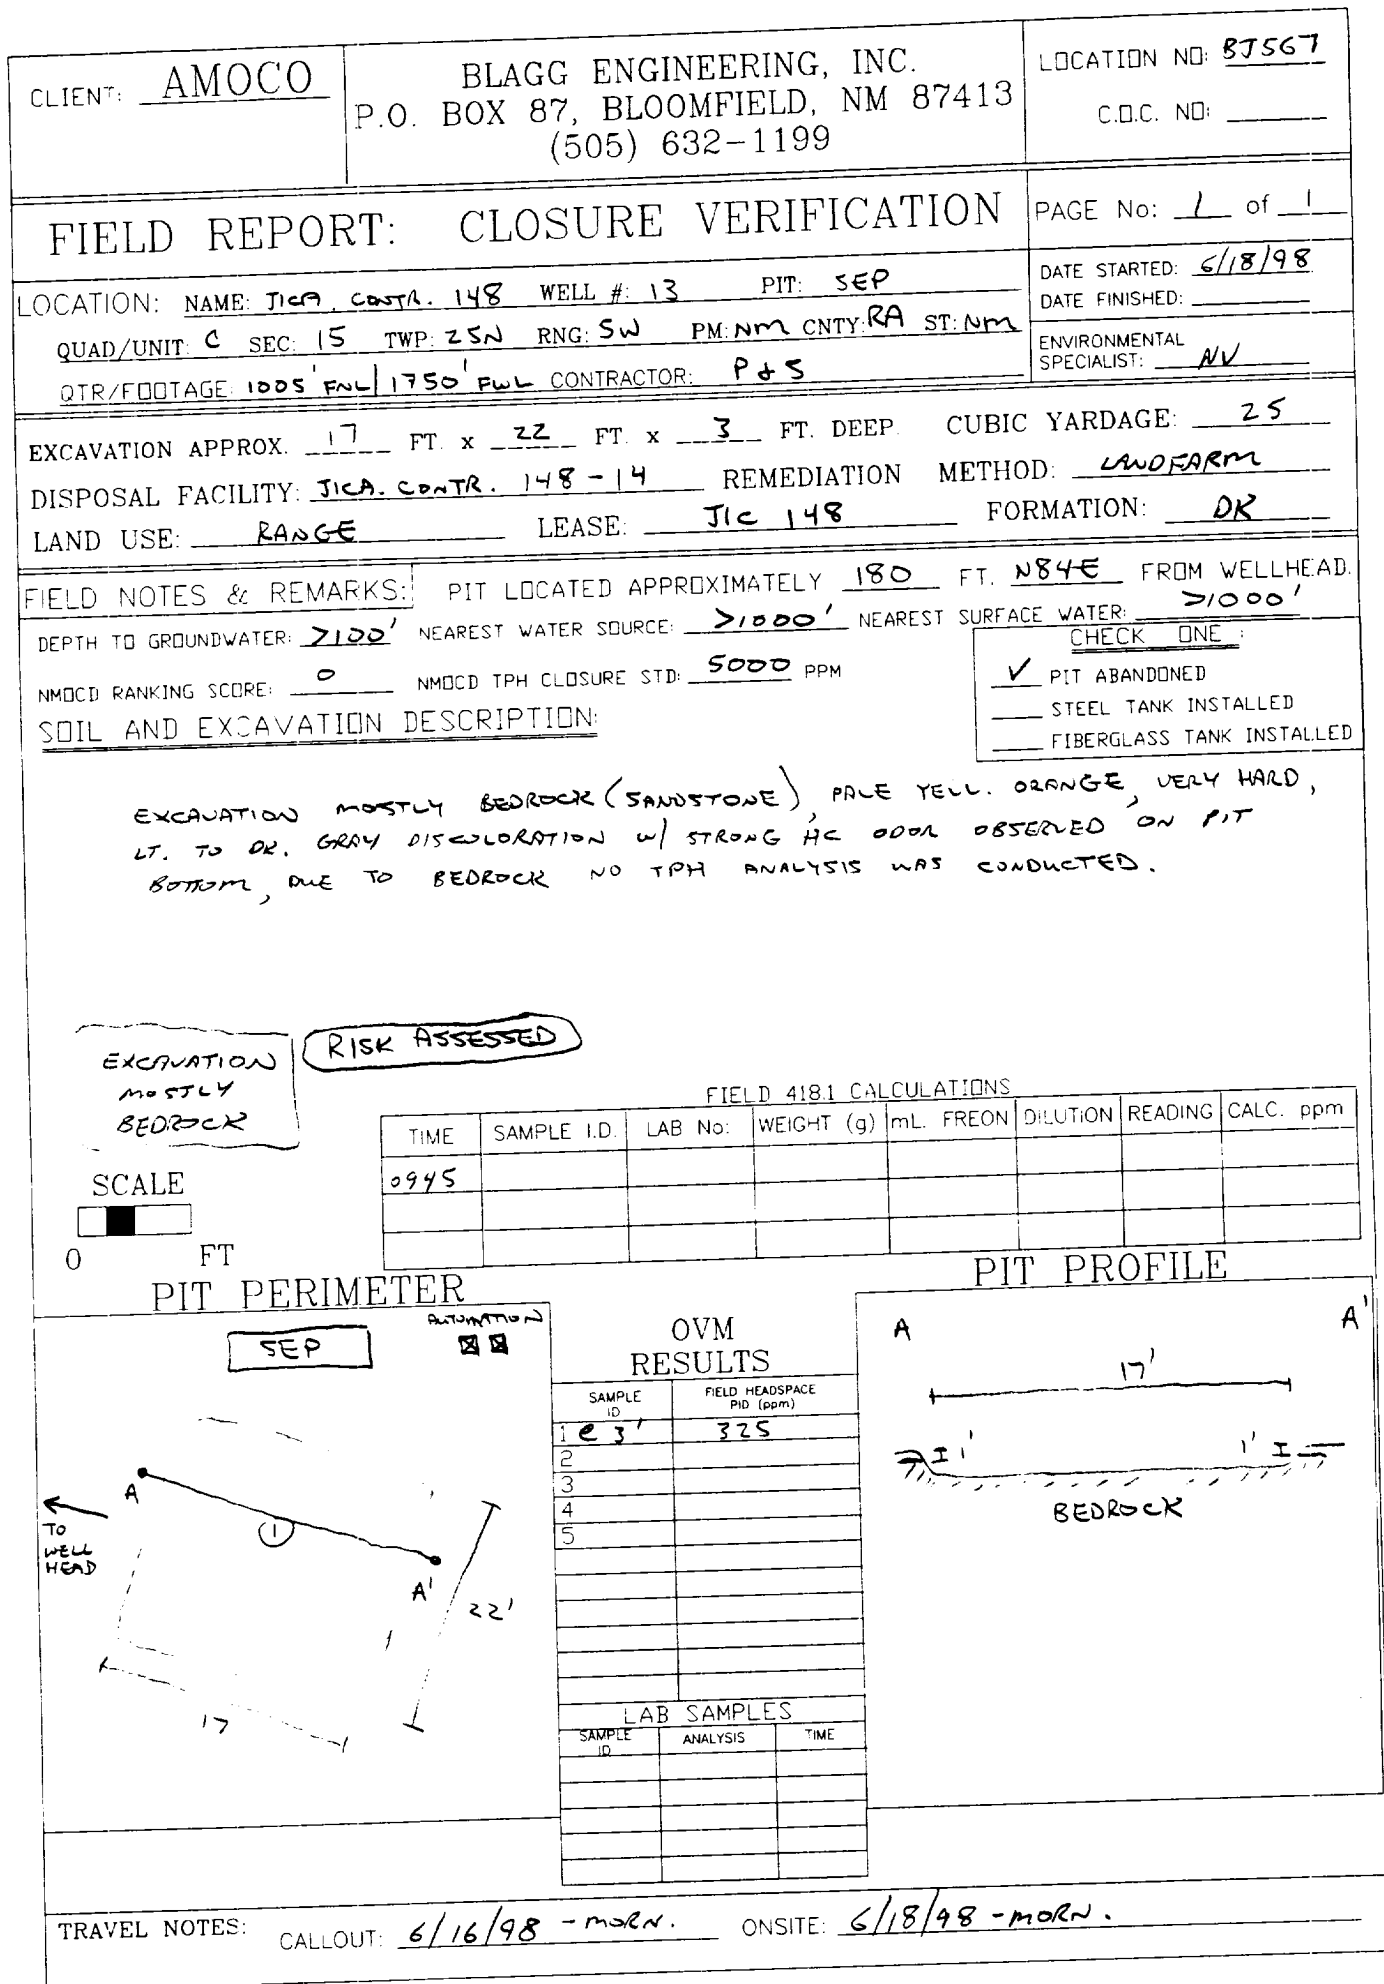 CLIENT: AMOCO
BLAGG ENGINEERING, INC.
P.O. BOX 87, BLOOMFIELD, NM 87413
(505) 632-1199
LOCATION NO: BJ567
C.O.C. NO:
FIELD REPORT: CLOSURE VERIFICATION
PAGE No: 1 of 1
LOCATION: NAME: JICA. CONTR. 148 WELL #: 13 PIT: SEP
QUAD/UNIT: C SEC: 15 TWP: 25N RNG: 5W PM: NM CNTY: RA ST: NM
QTR/FOOTAGE: 1005' FNL/1750' FWL CONTRACTOR: P & S
DATE STARTED: 6/18/98
DATE FINISHED:
ENVIRONMENTAL
SPECIALIST: NV
EXCAVATION APPROX. 17 FT. x 22 FT. x 3 FT. DEEP. CUBIC YARDAGE: 25
DISPOSAL FACILITY: JICA. CONTR. 148-14 REMEDIATION METHOD: LANDFARM
LAND USE: RANGE LEASE: JIC 148 FORMATION: DK
FIELD NOTES & REMARKS: PIT LOCATED APPROXIMATELY 180 FT. N84E FROM WELLHEAD.
DEPTH TO GROUNDWATER: >100' NEAREST WATER SOURCE: >1000' NEAREST SURFACE WATER: >1000'
NMOCD RANKING SCORE: 0 NMOCD TPH CLOSURE STD: 5000 PPM
CHECK ONE :
✓ PIT ABANDONED
STEEL TANK INSTALLED
FIBERGLASS TANK INSTALLED
SOIL AND EXCAVATION DESCRIPTION:
EXCAVATION MOSTLY BEDROCK (SANDSTONE), PALE YELL. ORANGE, VERY HARD,
LT. TO DK. GRAY DISCOLORATION W/ STRONG HC ODOR OBSERVED ON PIT
BOTTOM, DUE TO BEDROCK NO TPH ANALYSIS WAS CONDUCTED.
EXCAVATION
MOSTLY
BEDROCK
RISK ASSESSED
FIELD 418.1 CALCULATIONS
TIME SAMPLE I.D. LAB No: WEIGHT (g) mL. FREON DILUTION READING CALC. ppm
0945
SCALE
0 FT
PIT PERIMETER
SEP
AUTOMATION
A
TO
WELL
HEAD
1
A'
22'
17
OVM
RESULTS
SAMPLE
ID
FIELD HEADSPACE
PID (ppm)
1 @ 3' 325
2
3
4
5
LAB SAMPLES
SAMPLE
ID
ANALYSIS TIME
PIT PROFILE
A A'
17'
1' 1'
BEDROCK
TRAVEL NOTES: CALLOUT: 6/16/98 - MORN. ONSITE: 6/18/98 - MORN.